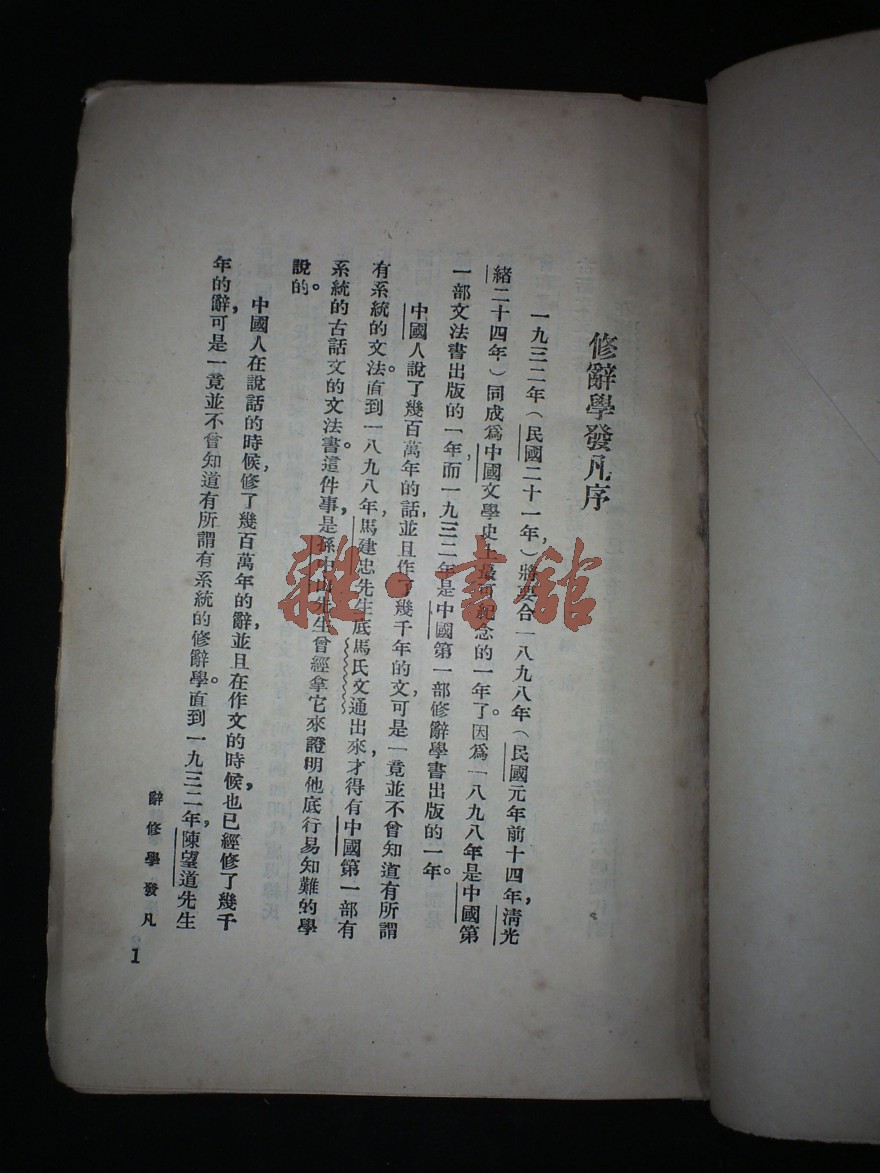 修辭學發凡序
一九三二年（民國二十一年，）將要合一八九八年（民國元年前十四年，清光
緒二十四年）同成爲中國文學史上最可紀念的一年了。因爲一八九八年是中國第
一部文法書出版的一年，而一九三二年是中國第一部修辭學書出版的一年。
中國人說了幾百萬年的話，並且作了幾千年的文，可是一竟並不曾知道有所謂
有系統的文法。直到一八九八年，馬建忠先生底馬氏文通出來，才得有中國第一部有
系統的古話文的文法書。這件事，是孫中山先生曾經拿它來證明他底行易知難的學
說的。
中國人在說話的時候，修了幾百萬年的辭，並且在作文的時候，也已經修了幾千
年的辭，可是一竟並不曾知道有所謂有系統的修辭學。直到一九三二年，陳望道先生
辭修學發凡
1
雜·書館